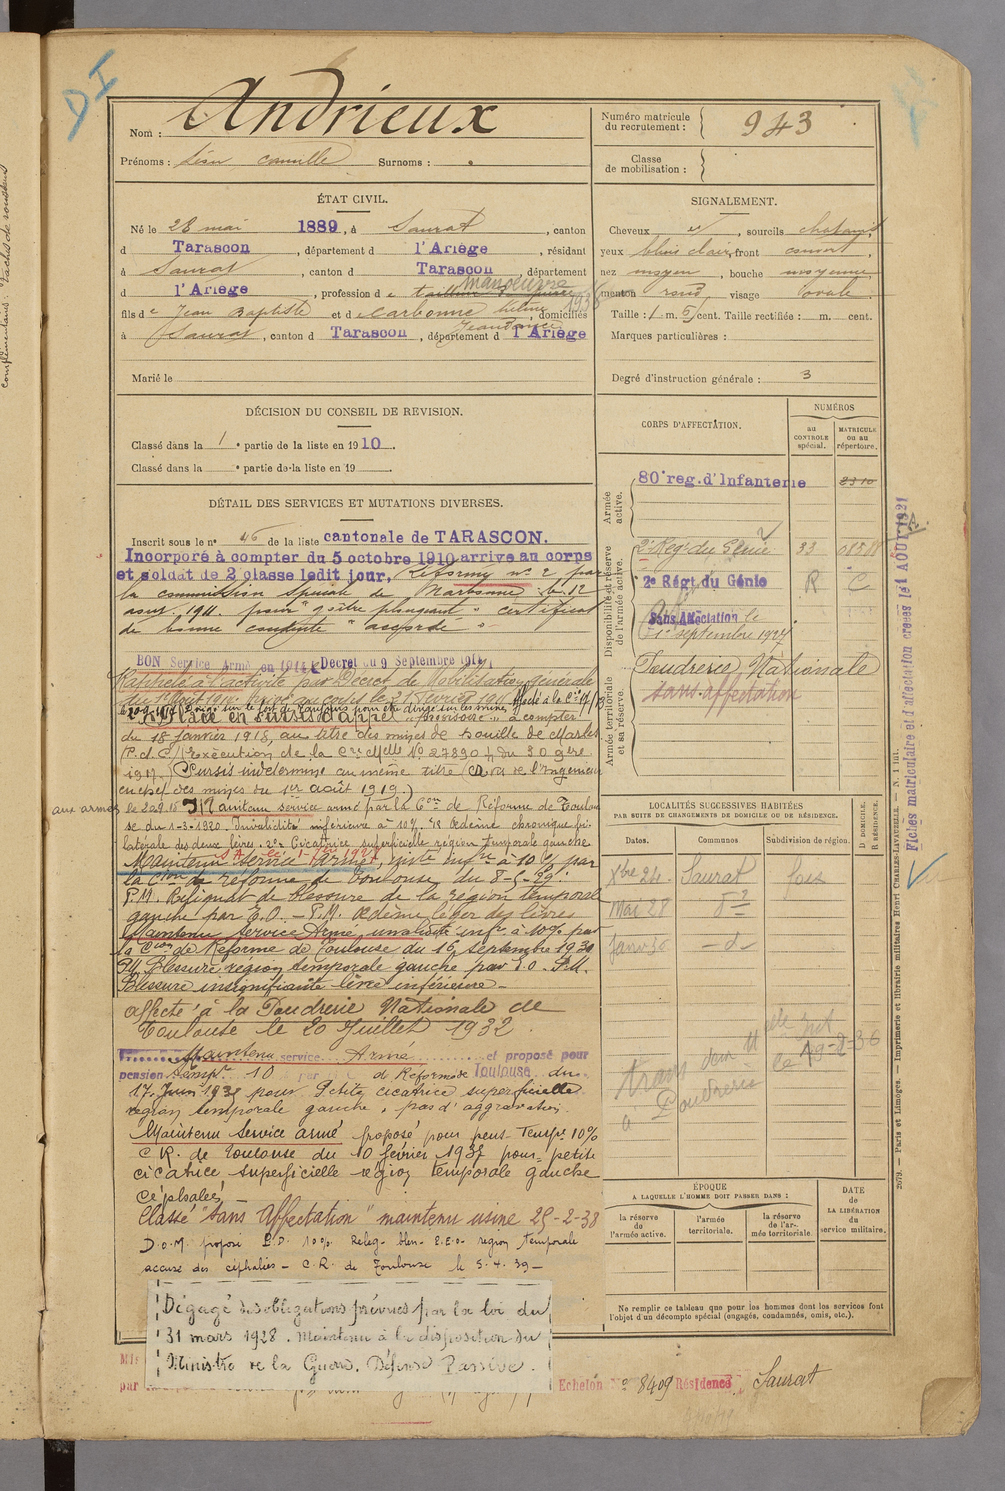 DI
Nom : Andrieux
Prénoms : Léon Camille Surnoms :
Numéro matricule du recrutement : 943
Classe de mobilisation :
ÉTAT CIVIL.
Né le 28 mai 1889, à Saurat, canton
d Tarascon, département d l'Ariège, résidant
à Saurat, canton d Tarascon, département
manœuvre
d l'Ariège, profession de
1936
fils de Jean Baptiste et de Carbonne, domiciliés
à Saurat, canton d Tarascon, département d l'Ariège
Marié le
SIGNALEMENT.
Cheveux et, sourcils chatains,
yeux bleus clair, front
nez moyen, bouche moyenne
menton rond, visage ovale.
Taille : 1 m. cent. Taille rectifiée : m. cent.
Marques particulières :
Degré d'instruction générale : 3
DÉCISION DU CONSEIL DE REVISION.
Classé dans la 1 e partie de la liste en 1910.
Classé dans la e partie de la liste en 19
DÉTAIL DES SERVICES ET MUTATIONS DIVERSES.
Inscrit sous le n° 46 de la liste cantonale de TARASCON.
Incorporé à compter du 5 octobre 1910 arrive au corps
et soldat de 2e classe ledit jour, Réformé n° 2 par
la commission spéciale de Narbonne le 12
août 1911 pour "goitre plongeant" certificat
de bonne conduite "accordé"
BON Service Armé en 1914 Décret du 9 Septembre 1914
Rappelé à l'activité par Décret de Mobilisation générale
du 1er Août 1914.
Placé en sursis d'appel "provisoire" à compter
du 18 janvier 1918, au titre des mines de houille de Carles
(P.d.C) (Exécution de la Cre Mlle N° 27890 du 30 9bre
1917.) Sursis indéterminé au même titre (A de l'Ingénieur
en chef des mines du 1er août 1919.)
Maintenu service armé par la Con de Réforme de Toulou
se du 1-3-1920. Invalidité inférieure à 10%. 1° Œdème chronique bi-
latérale des deux lèvres. 2° Cicatrice superficielle région temporale gauche
Maintenu Service Armé, invté infre à 10% par
la Cion de réforme de Toulouse du 8-5-29:
P.M. Reliquat de blessure de la région temporale
gauche par E.O. - P.M. Œdème léger des lèvres
Maintenu Service Armé invalidité infre à 10% par
la Cion de Réforme de Toulouse du 16 septembre 1930
P.M. Blessure région temporale gauche par E.O. P.M.
Blessure insignifiante lèvre inférieure -
affecté à la Poudrerie Nationale de
Toulouse le 20 Juillet 1932.
Maintenu service Armé et proposé pour
pension temp.re 10 par C. de Réforme de Toulouse du
17 Juin 1935 pour Petite cicatrice superficielle
région temporale gauche, pas d'aggravation.
Maintenu Service armé proposé pour pens. Tempre 10%
C.R. de Toulouse du 10 février 1937 pour petite
cicatrice superficielle région temporale gauche
Céphalées
Classé "Sans Affectation" maintenu usine 25-2-38
D.O.M. proposé P.D. 10% Reliq. bless. P.E.O. région temporale
accuse des céphalées - C.R. de Toulouse le 5.4.39 -
Dégagé des obligations prévues par la loi du
31 mars 1928. Maintenu à la disposition du
Ministre de la Guerre. Défense Passive.
Echelon N° 8409 Résidence Saurat
CORPS D'AFFECTATION.
NUMÉROS
au CONTROLE spécial.
MATRICULE ou au répertoire.
Armée active.
80e reg. d'Infanterie 2310
Disponibilité et réserve de l'armée active.
2e Reg. du Génie 33 08518
2e Régt. du Génie R C
Sans Affectation le
1er septembre 1927
Armée territoriale et sa réserve.
Poudrerie Nationale
sans affectation
LOCALITÉS SUCCESSIVES HABITÉES
PAR SUITE DE CHANGEMENTS DE DOMICILE OU DE RÉSIDENCE.
Dates. Communes Subdivision de région. D DOMICILE. R RÉSIDENCE.
Xbre 24. Saurat foix
Mai 28 do
Janv 30 - d -
le 19-8-36
Poudrerie
ÉPOQUE
A LAQUELLE L'HOMME DOIT PASSER DANS :
la réserve de l'armée active.
l'armée territoriale.
la réserve de l'armée territoriale.
DATE de LA LIBÉRATION du service militaire.
Ne remplir ce tableau que pour les hommes dont les services font
l'objet d'un décompte spécial (engagés, condamnés, omis, etc.).
2079. — Paris et Limoges. — Imprimerie et librairie militaires Henri CHARLES-LAVAUZELLE. — N. 1 int.
Fiches matriculaire et d'affectation créées le 1 AOÛT 1921